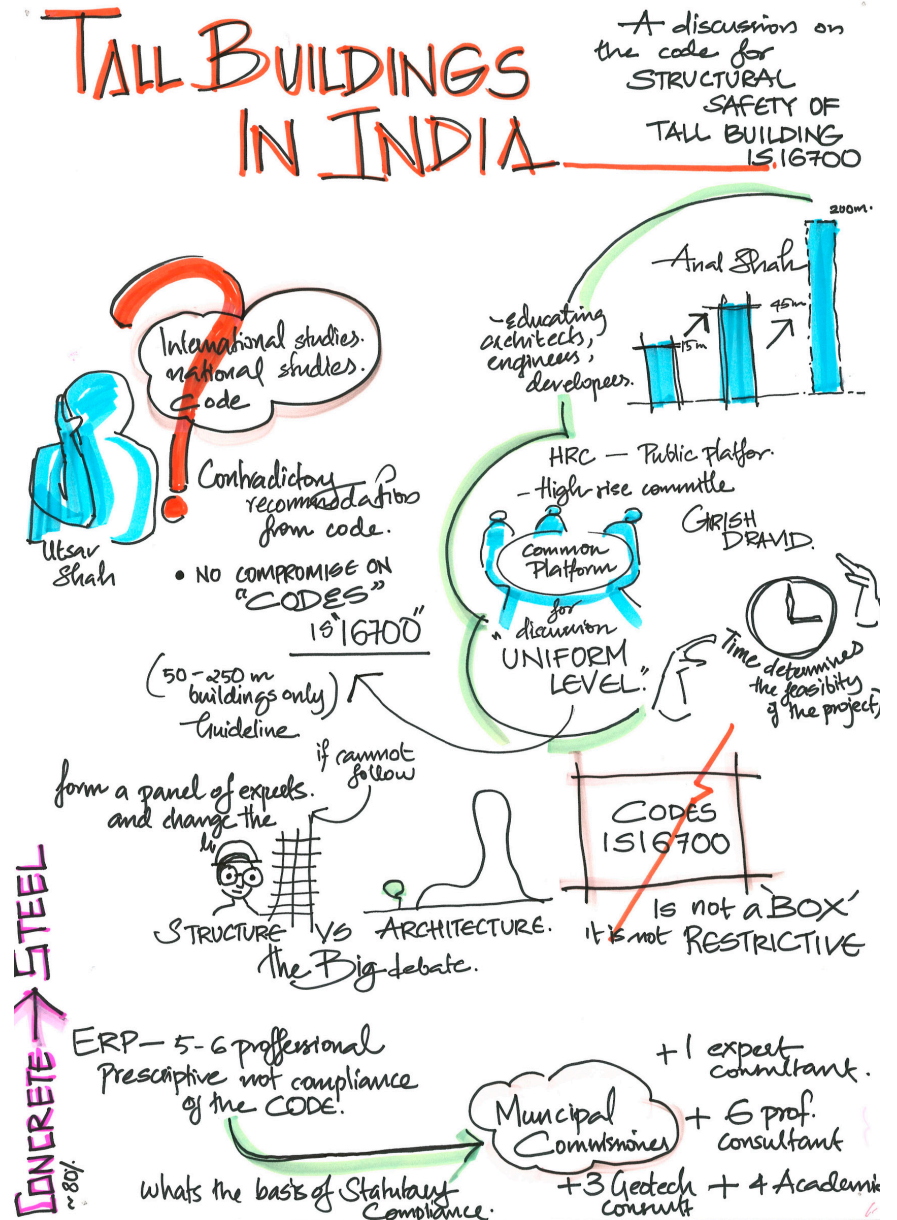 TALL BUILDINGS
IN INDIA
A discussion on
the code for
STRUCTURAL
SAFETY OF
TALL BUILDING
IS 16700
200m.
Anal Shah
45m
15m
-educating
architects,
engineers,
developers.
International studies.
national studies.
Code
Utsav
Shah
Contradictory
recommodations
from code.
• NO COMPROMISE ON
"CODES"
IS "16700"
(50-250 m
buildings only)
Guideline
HRC — Public platfor.
- High rise committe
GIRISH
DRAVID.
common
Platform
for
discussion
"UNIFORM
LEVEL."
Time determines
the feasibity
of the project,
if cannot
follow
form a panel of expects.
and change the
STRUCTURE VS ARCHITECTURE.
the Big debate.
CODES
IS16700
Is not a 'BOX'
it is not RESTRICTIVE
CONCRETE → STEEL
~80%
ERP — 5-6 proffessional
Prescriptive not compliance
of the CODE.
Muncipal
Commisioner
+1 expert
consultant.
+ 6 prof.
consultant
+3 Geotech + 4 Academi
consult
whats the basis of Statutary
Compliance.